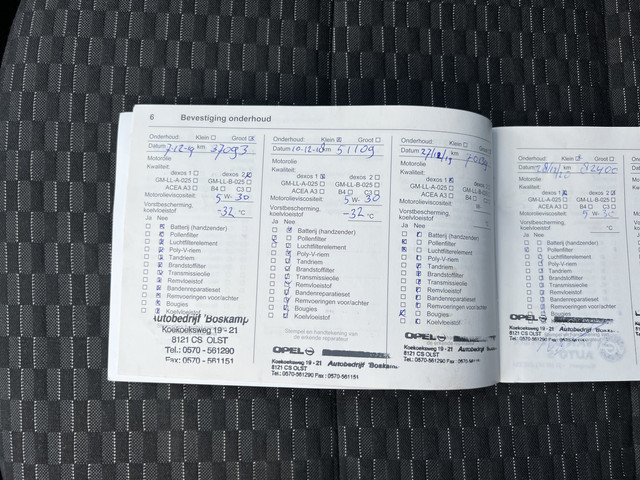 6 Bevestiging onderhoud
Onderhoud: Klein Groot
Datum km 37093
Motorolie
Kwaliteit:
dexos 1 dexos 2
GM-LL-A-025 GM-LL-B-025
ACEA A3 B4 C3
Motorolieviscositeit: 5 W- 30
Vorstbescherming, koelvloeistof -32 °C
Ja Nee
Batterij (handzender)
Pollenfilter
Luchtfilterelement
Poly-V-riem
Tandriem
Brandstoffilter
Transmissieolie
Remvloeistof
Bandenreparatieset
Remvoeringen voor/achter
Bougies
Koelvloeistof
Autobedrijf 'Boskamp
Koekoeksweg 19 - 21
8121 CS OLST
Tel.: 0570 - 561290
Fax: 0570 - 561151
Onderhoud: Klein Groot
Datum km 51109
Motorolie
Kwaliteit:
dexos 1 dexos 2
GM-LL-A-025 GM-LL-B-025
ACEA A3 B4 C3
Motorolieviscositeit: 5 W- 30
Vorstbescherming, koelvloeistof -32 °C
Ja Nee
Batterij (handzender)
Pollenfilter
Luchtfilterelement
Poly-V-riem
Tandriem
Brandstoffilter
Transmissieolie
Remvloeistof
Bandenreparatieset
Remvoeringen voor/achter
Bougies
Koelvloeistof
Stempel en handtekening van
de erkende reparateur
OPEL
Koekoeksweg 19 - 21 Autobedrijf 'Boskamp
8121 CS OLST
Tel.: 0570-561290 Fax : 0570-561151
Onderhoud: Klein Groot
Datum km
Motorolie
Kwaliteit:
dexos 1 dexos 2
GM-LL-A-025 GM-LL-B-025
ACEA A3 B4 C3
Motorolieviscositeit: 5 W- 30
Vorstbescherming, koelvloeistof -32 °C
Ja Nee
Batterij (handzender)
Pollenfilter
Luchtfilterelement
Poly-V-riem
Tandriem
Brandstoffilter
Transmissieolie
Remvloeistof
Bandenreparatieset
Remvoeringen voor/achter
Bougies
Koelvloeistof
OPEL
Koekoeksweg 19 - 21 Autobedrijf 'Boskamp
8121 CS OLST
Tel.: 0570-561290 Fax : 0570-561151
Onderhoud: Klein Groot
Datum km
Motorolie
Kwaliteit:
dexos 1 dexos 2
GM-LL-A-025 GM-LL-B-025
ACEA A3 B4 C3
Motorolieviscositeit: 5 W- 30
Vorstbescherming, koelvloeistof °C
Ja Nee
Batterij (handzender)
Pollenfilter
Luchtfilterelement
Poly-V-riem
Tandriem
Brandstoffilter
Transmissieolie
Remvloeistof
Bandenreparatieset
Remvoeringen voor/achter
Bougies
Koelvloeistof
OPEL
Koekoeksweg 19 - 21 Autobedrijf
8121 CS OLST